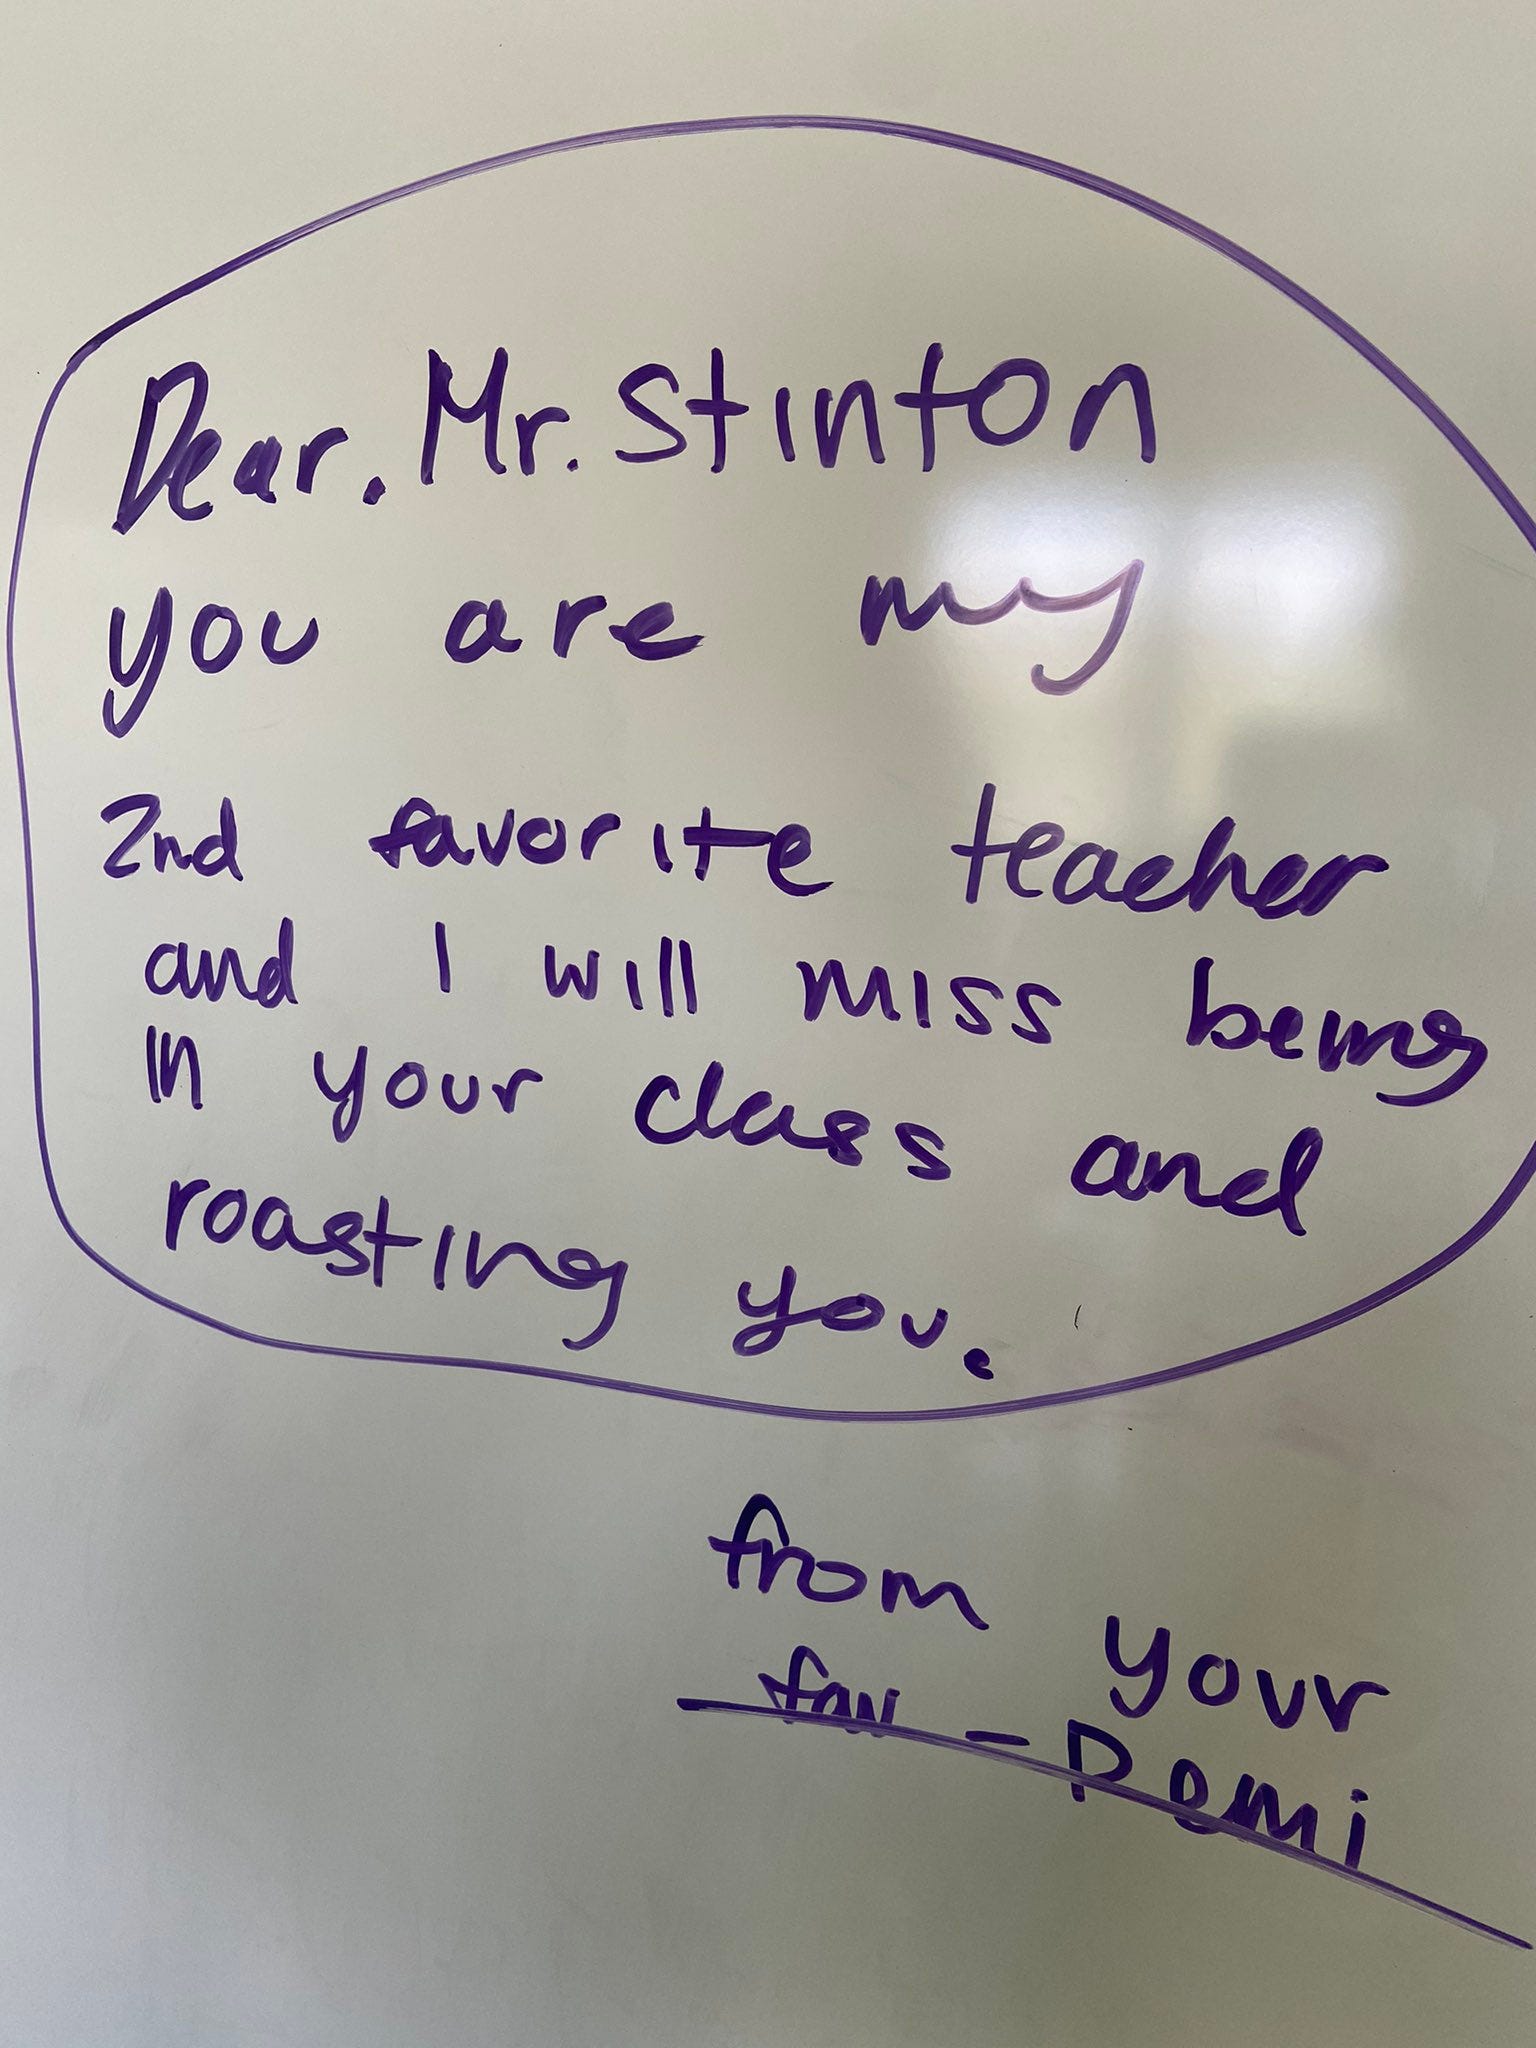 Dear. Mr. Stinton
you are my
2nd favorite teacher
and I will miss being
in your class and
roasting you.
from your
fav - Demi